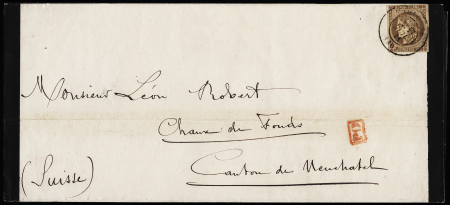 Monsieur Léon Robert
Chaux de Fonds
PD
Canton de Neuchatel
(Suisse)